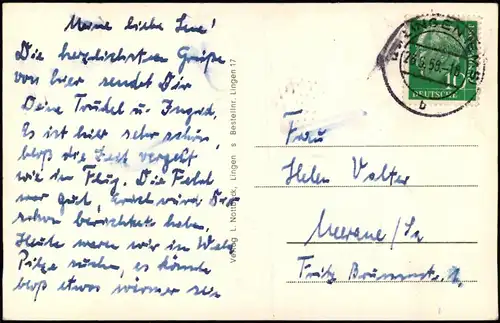 Meine liebe Lene!
Die herzlichsten Grüße
von hier sendet Dir
Deine Trudel u. Ingrid.
Es ist hier sehr schön,
bloß die Zeit vergeht
wie im Flug. Die Fahrt
war gut, Erich wird Dir
schon berichtet haben.
Heute waren wir im Wald
Pilze suchen, es könnte
bloß etwas wärmer sein
Verlag L. Lingen s Bestellnr. Lingen 17
LINGEN
b
10
DEUTSCHE
Frau
Helen Walter
Meerane/Sa
Fritz